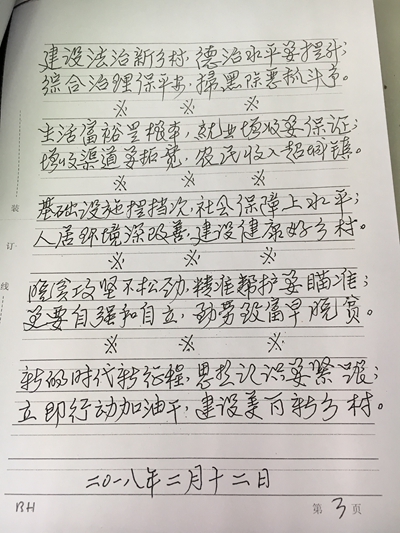 建设法治新乡村，德治水平要提升；
综合治理保平安，掃黑除恶抓斗争。
※ ※ ※
生活富裕是根本，就业增收要保证；
增收渠道要拓宽，农民收入超城镇。
※ ※ ※
基础设施提挡次，社会保障上水平；
人居环境深改善，建设健康好乡村。
※ ※ ※
脱贫攻坚不松劲，精准帮护要瞄准；
更要自强和自立，勤劳致富早脱贫。
※ ※ ※
新的时代新征程，思想认识要紧跟；
立即行动加油干，建设美百新乡村。
二〇一八年二月十二日
装
订
线
BH
第 3 页